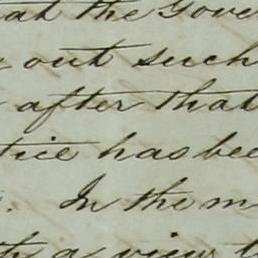 at the Gove
out such
after that
tice has bee
. In the m
a view t